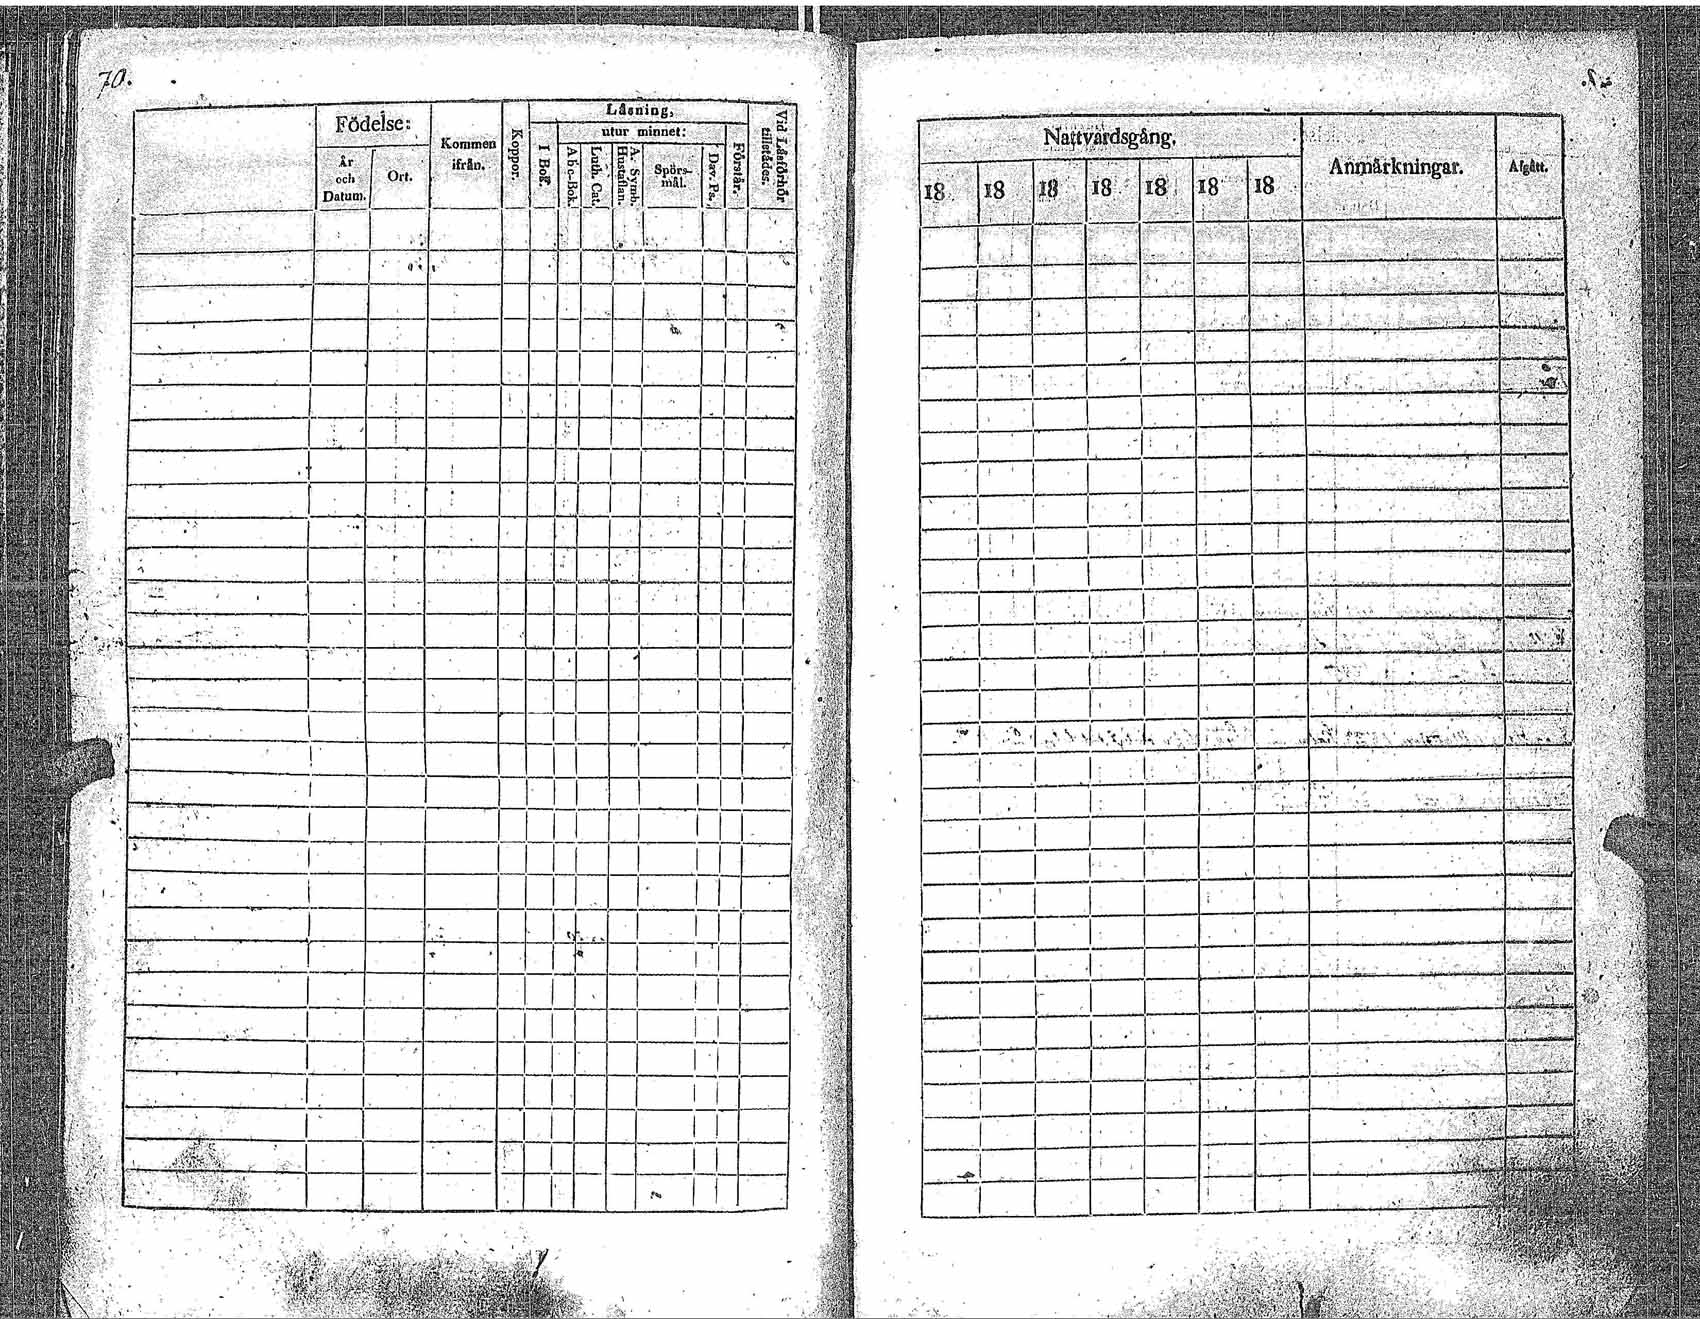 70.
Födelse:
År
och
Datum.
Ort.
Kommen
ifrån.
Koppor.
Låsning,
I Bok.
utur minnet:
Abc-Bok.
Luth. Cat.
A. Symb.
Hustaflan.
Spörs-
mål.
Dav. Ps.
Förstår.
Vid Låsförhör
tillstådes.
Nattvardsgång,
18 18 18 18 18 18 18
Anmärkningar.
Afgått.